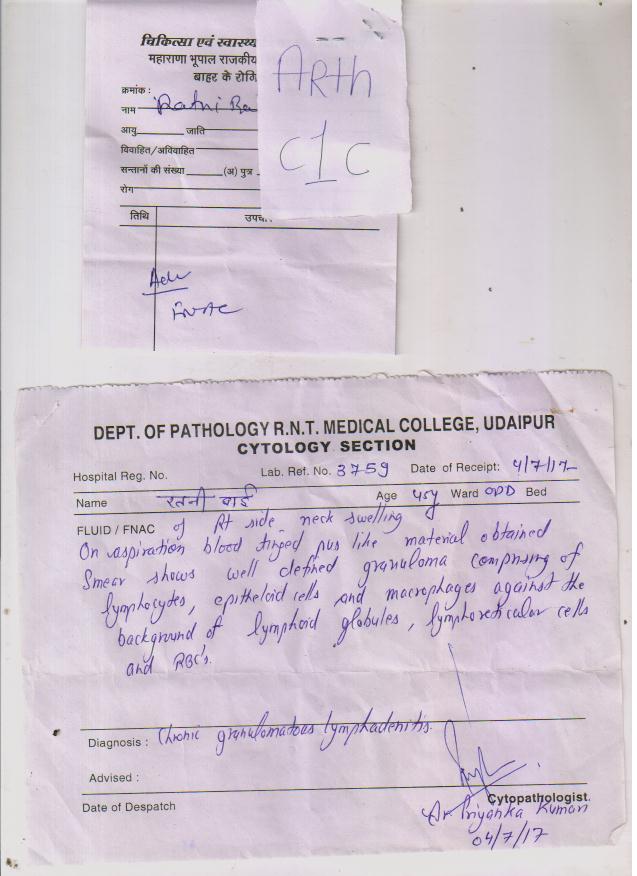 चिकित्सा एवं स्वास्थ्य
महाराणा भूपाल राजकीय
बाहर के रोगि
क्रमांक :
नाम Ratni Ba
आयु जाति
विवाहित/अविवाहित
सन्तानों की संख्या (अ) पुत्र
रोग
तिथि उपचा
Adv
FNAC
ARTh
C1C
DEPT. OF PATHOLOGY R.N.T. MEDICAL COLLEGE, UDAIPUR
CYTOLOGY SECTION
Hospital Reg. No. Lab. Ref. No. 3759 Date of Receipt: 4/7/17
Name रतनी बाई Age 45y Ward OPD Bed
FLUID / FNAC of Rt side neck swelling
On aspiration blood tinged pus like material obtained
Smear shows well defined granuloma comprising of
lymphocytes, epitheloid cells and macrophages against the
background of lymphoid globules, lymphoreticular cells
and RBC's.
Diagnosis : Chronic granulomatous lymphadenitis.
Advised :
Cytopathologist.
Date of Despatch
Dr Priyanka Kumari
04/7/17